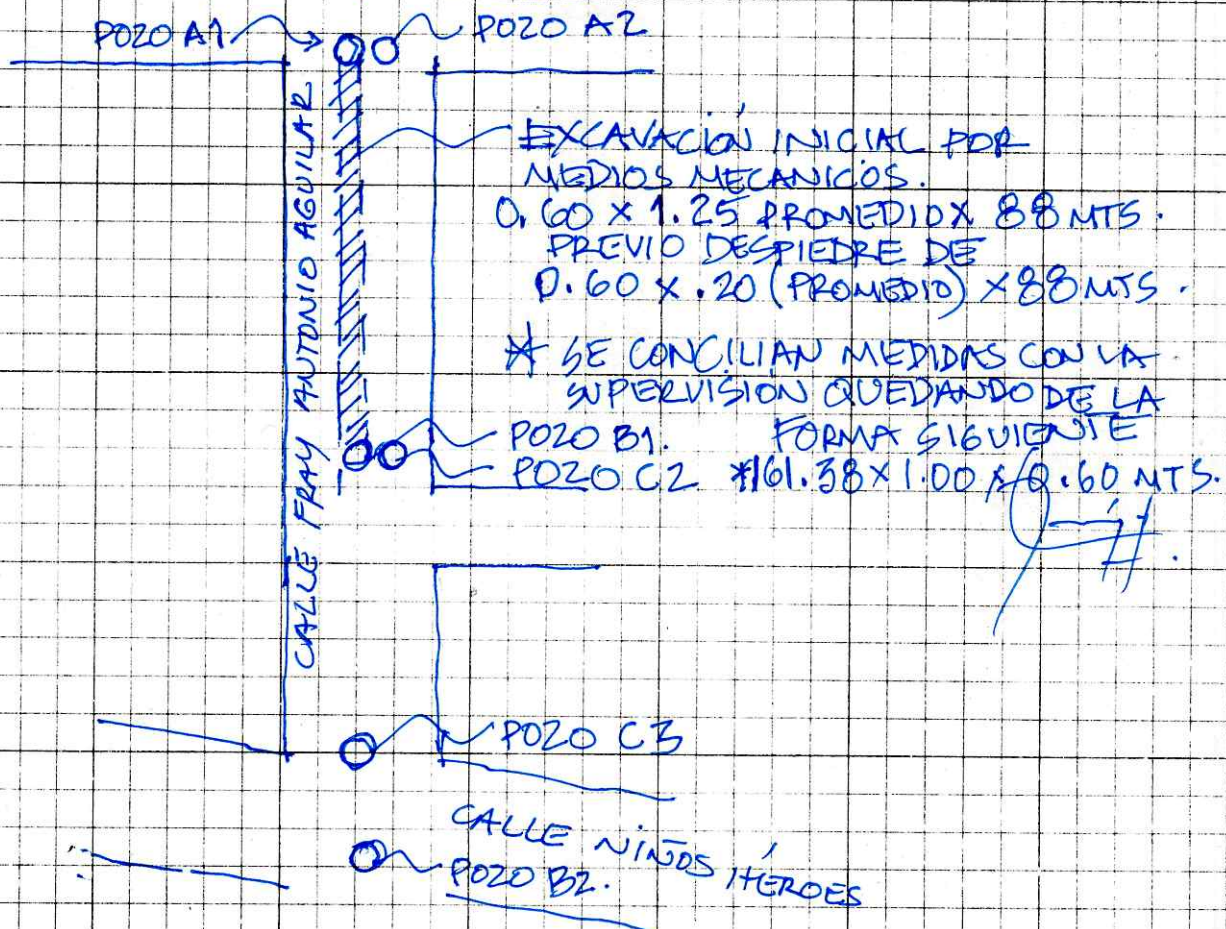 POZO A1
POZO A2
CALLE FRAY ANTONIO AGUILAR
EXCAVACIÓN INICIAL POR
MEDIOS MECANICOS.
0.60 X 1.25 PROMEDIO X 88 MTS.
PREVIO DESPIEDRE DE
0.60 X .20 (PROMEDIO) X 88 MTS.
* SE CONCILIAN MEDIDAS CON LA
SUPERVISIÓN QUEDANDO DE LA
FORMA SIGUIENTE
POZO B1.
POZO C2
*161.38 X 1.00 X 0.60 MTS.
POZO C3
CALLE NIÑOS HÉROES
POZO B2.